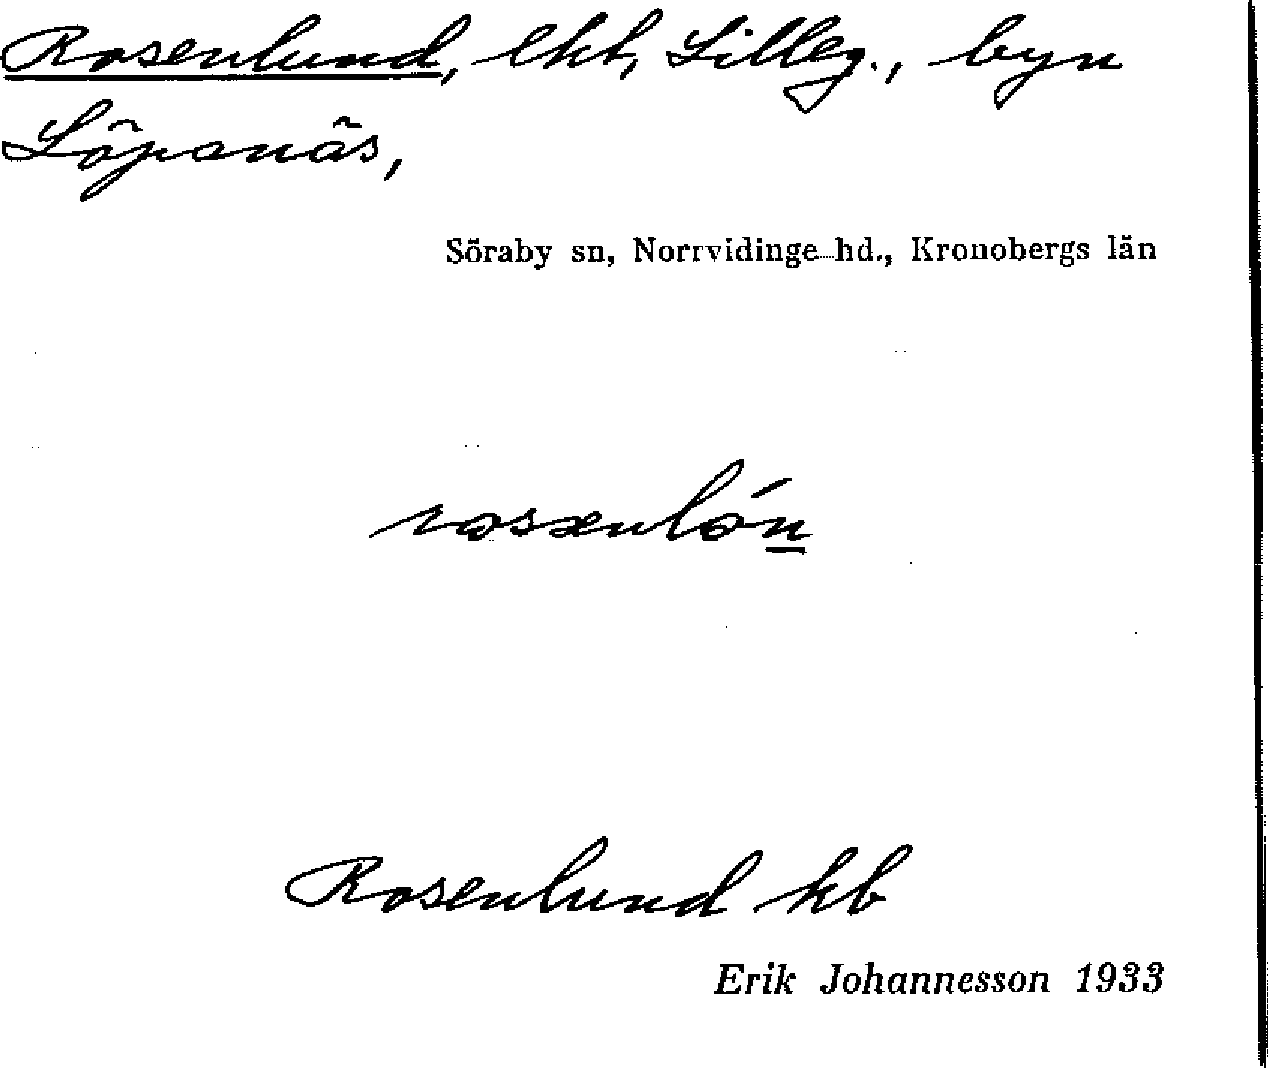 Rosenlund, lht, Lilleg., byn
Löpanäs,
Söraby sn, Norrvidinge hd., Kronobergs län
rosænlón
Rosenlund kb
Erik Johannesson 1933